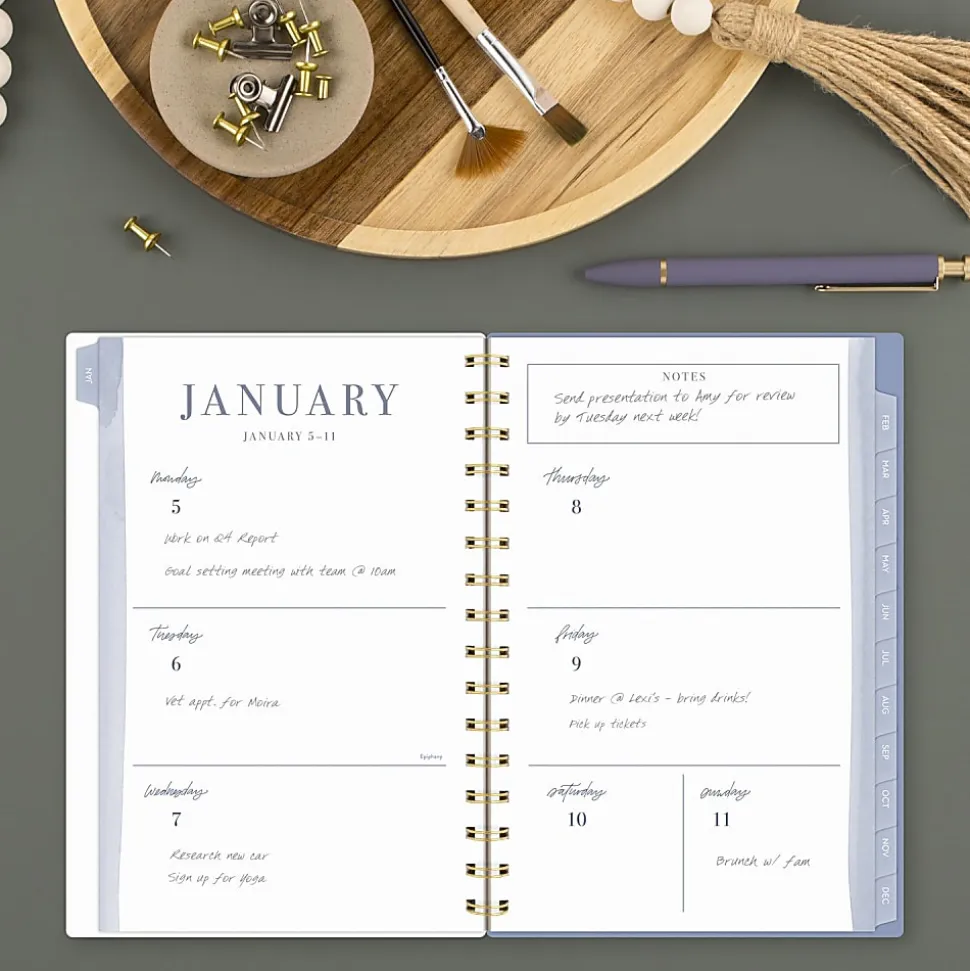 JAN
JANUARY
JANUARY 5–11
Monday
5
Work on Q4 Report
Goal setting meeting with team @ 10am
Tuesday
6
Vet appt. for Moira
Epiphany
Wednesday
7
Research new car
Sign up for Yoga
NOTES
Send presentation to Amy for review
by Tuesday next week!
Thursday
8
Friday
9
Dinner @ Lexi's - bring drinks!
Pick up tickets
Saturday
10
Sunday
11
Brunch w/ fam
FEB
MAR
APR
MAY
JUN
JUL
AUG
SEP
OCT
NOV
DEC